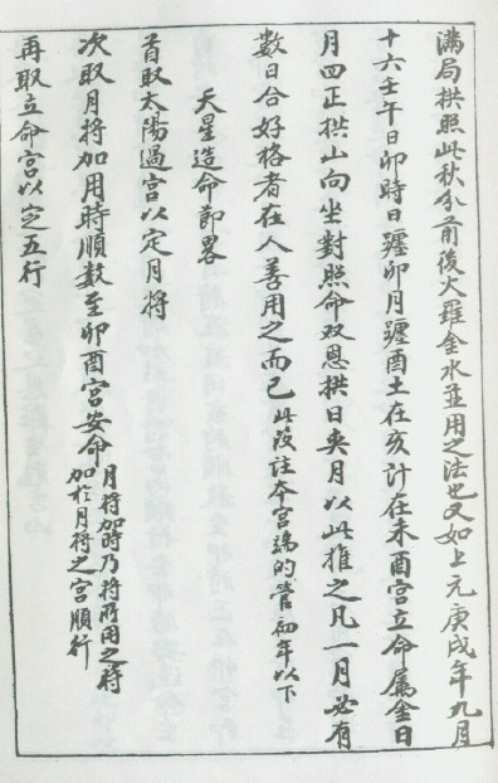 滿局拱照此秋分前後火羅金水並用之法也又如上元庚戌年九月
十六壬午日卯時日躔卯月躔酉土在亥計在未酉宮立命屬金日
月四正拱山向坐對照命双恩拱日夾月以此推之凡一月必有
數日合好格者在人善用之而已此段註本宮端的管初年以下
天星造命節畧
首取太陽過宮以定月将
次取月將加用時順数至卯酉宮安命月將加時乃將所用之時
加於月将之宮順行
再取立命宮以定五行